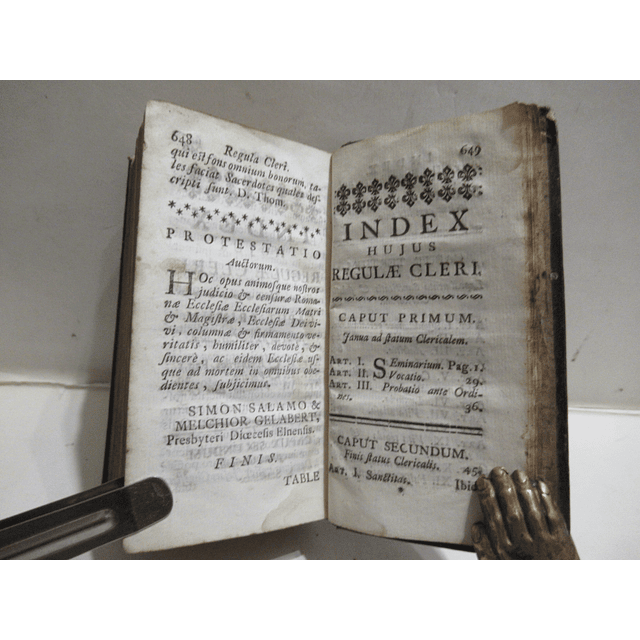 648 Regula Cleri.
qui est fons omnium bonorum, ta-
les faciat Sacerdotes quales des-
cripti sunt. D. Thom.
PROTESTATIO
Auctorum.
HOc opus animosque nostros
judicio & censuræ Roma-
næ Ecclesiæ Ecclesiarum Matri
& Magistræ, Ecclesiæ Dei vi-
vi, columnæ & firmamento ve-
ritatis, humiliter, devotè, &
sincerè, ac eidem Ecclesiæ us-
que ad mortem in omnibus obe-
dientes, subjicimus.
SIMON SALAMO &
MELCHIOR GELABERT,
Presbyteri Diœcesis Elnensis.
FINIS.
TABLE
649
INDEX
HUJUS
REGULÆ CLERI.
CAPUT PRIMUM.
Janua ad statum Clericalem.
ART. I. Seminarium. Pag. 1.
ART. II. Vocatio. 29.
ART. III. Probatio ante Ordi-
nes. 36.
CAPUT SECUNDUM.
Finis status Clericalis. 45
ART. I. Sanctitas. Ibid.